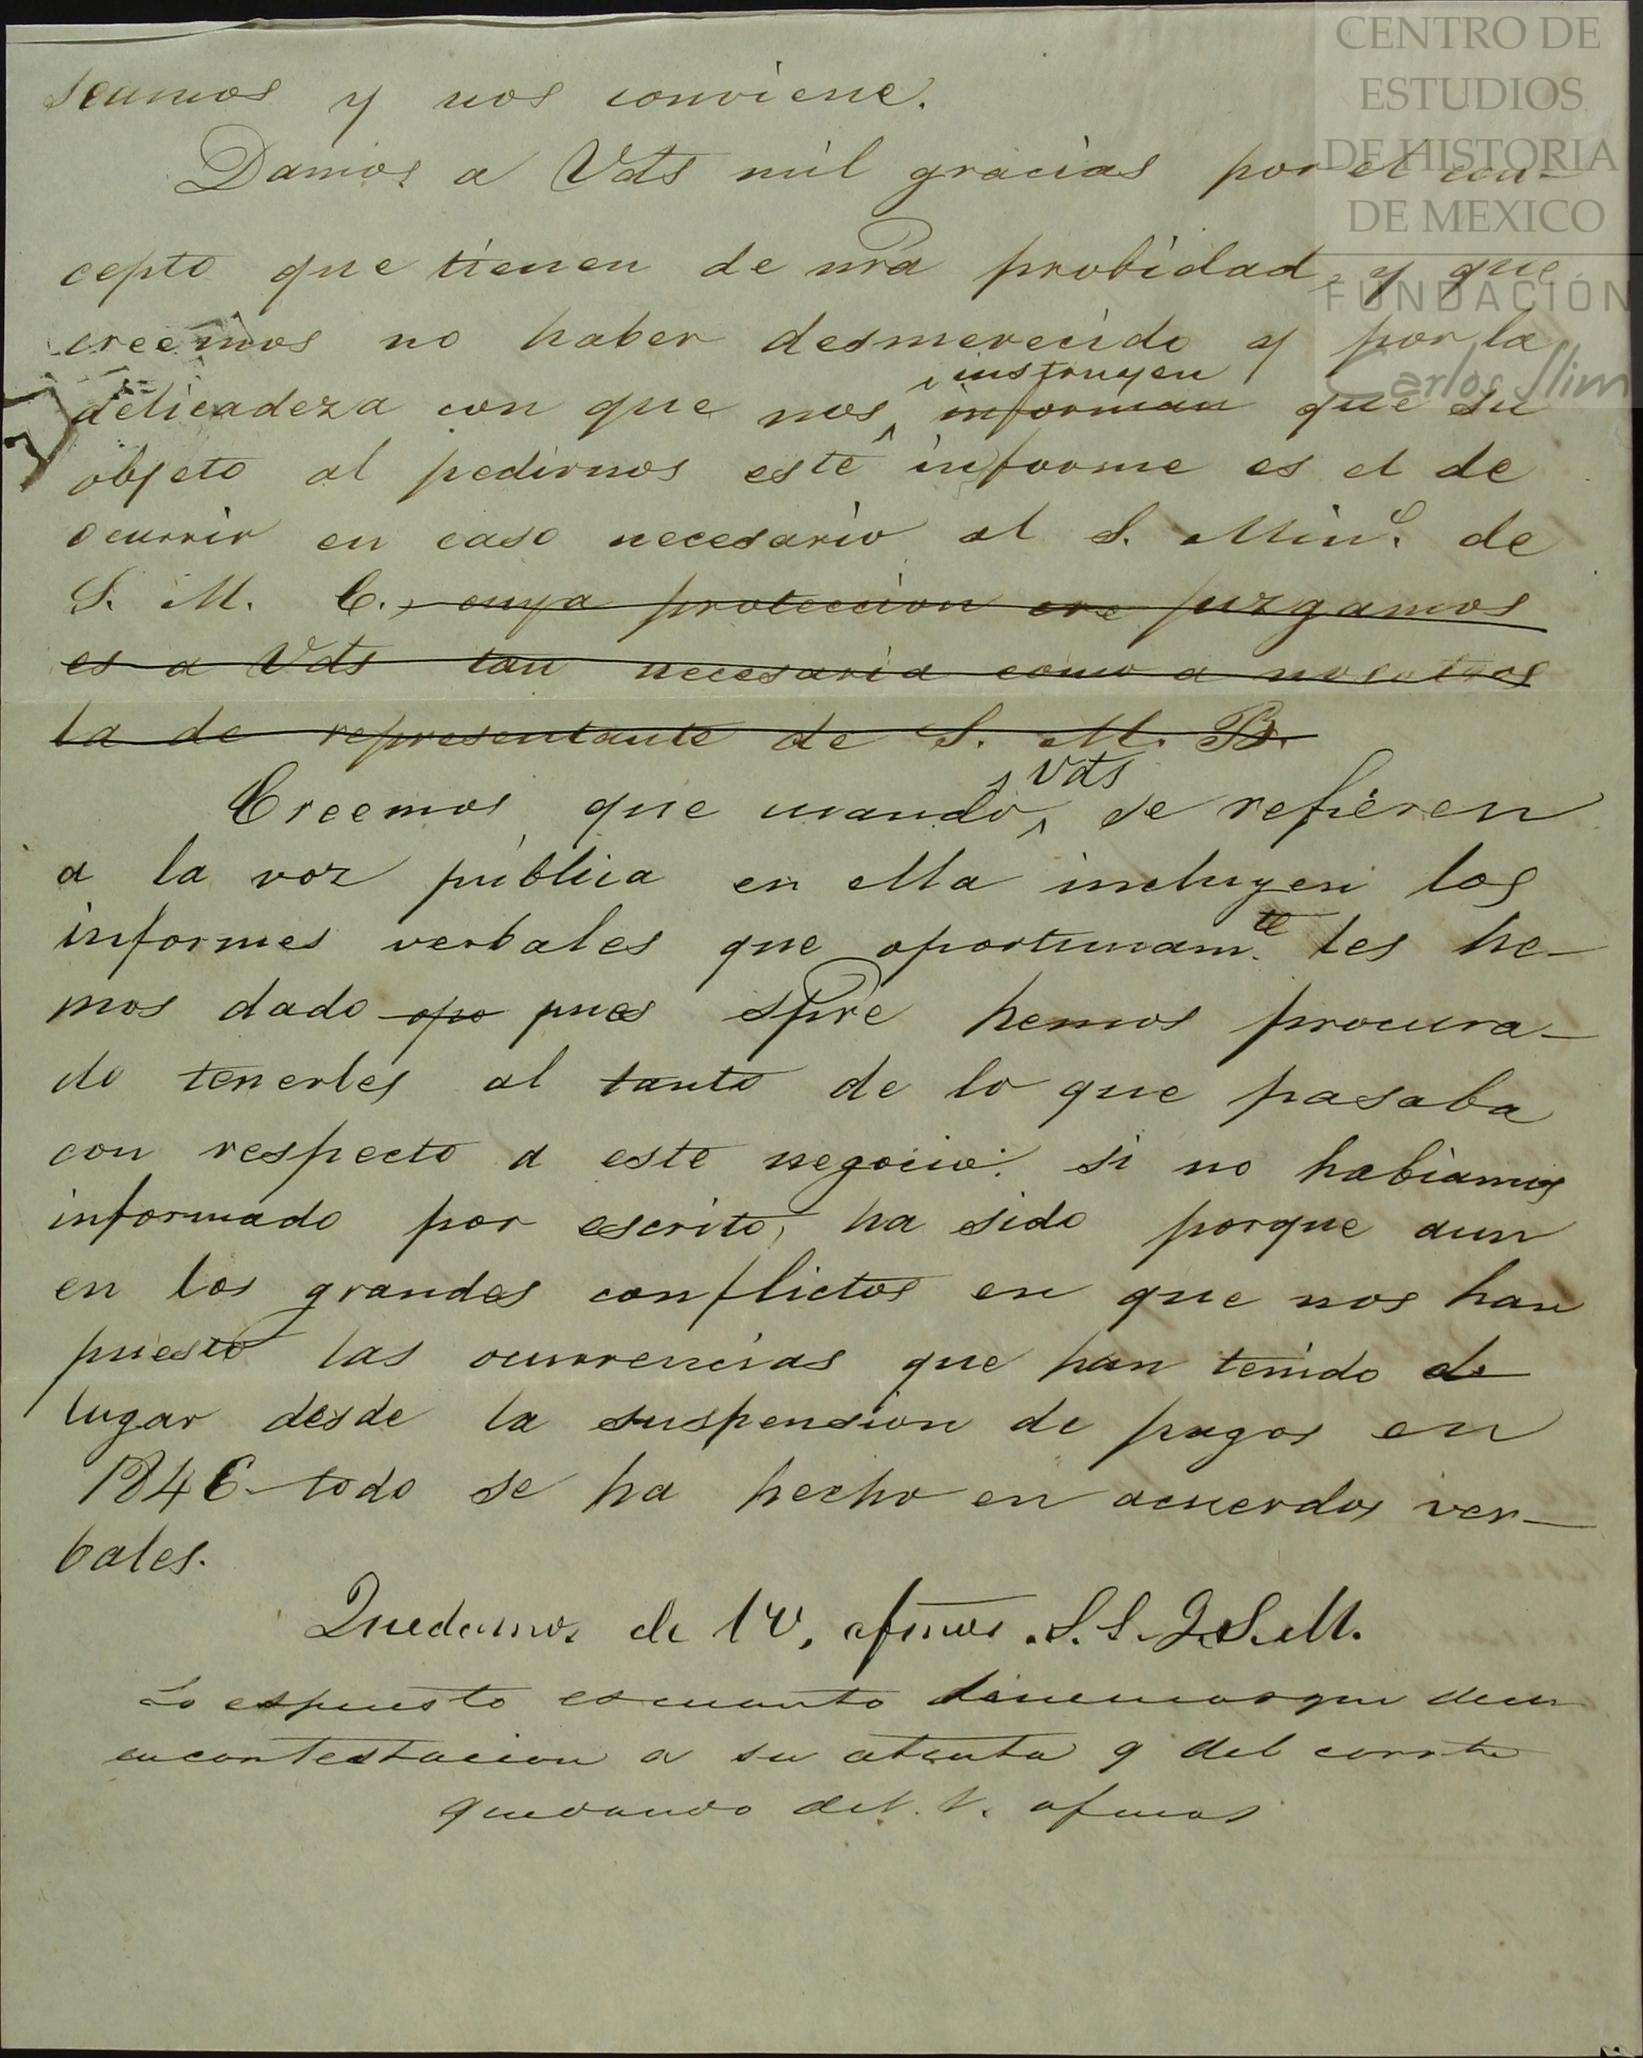 seamos y nos conviene.
Damos a Vds mil gracias por el con-
cepto que tienen de nra probidad, y que
creemos no haber desmerecido y por la
instruyen
delicadeza con que nos informan que su
objeto al pedirnos este informe es el de
ocurrir en caso necesario al S. Mino. de
S. M. C., cuya proteccion cre juzgamos
es a Vds tan necesaria como a nosotros
la de representante de S. M. B.
Vds
Creemos que cuando se refieren
a la voz pública en ella incluyen los
informes verbales que oportunam.te les he-
mos dado opo pues spre hemos procura-
do tenerles al tanto de lo que pasaba
con respecto a este negocio: si no habiamos
informado por escrito, ha sido porque aun
en los grandes conflictos en que nos han
puesto las ocurrencias que han tenido de
lugar desde la suspension de pagos en
1846 todo se ha hecho en acuerdos ver-
bales.
Quedamos de VV. afmos. S. S. Q. S. M.
Lo espuesto es cuanto tenemos que decir
en contestacion a su atenta 9 del corrte
quedando de V. V. afmos
CENTRO DE
ESTUDIOS
DE HISTORIA
DE MEXICO
FUNDACIÓN
Carlos Slim